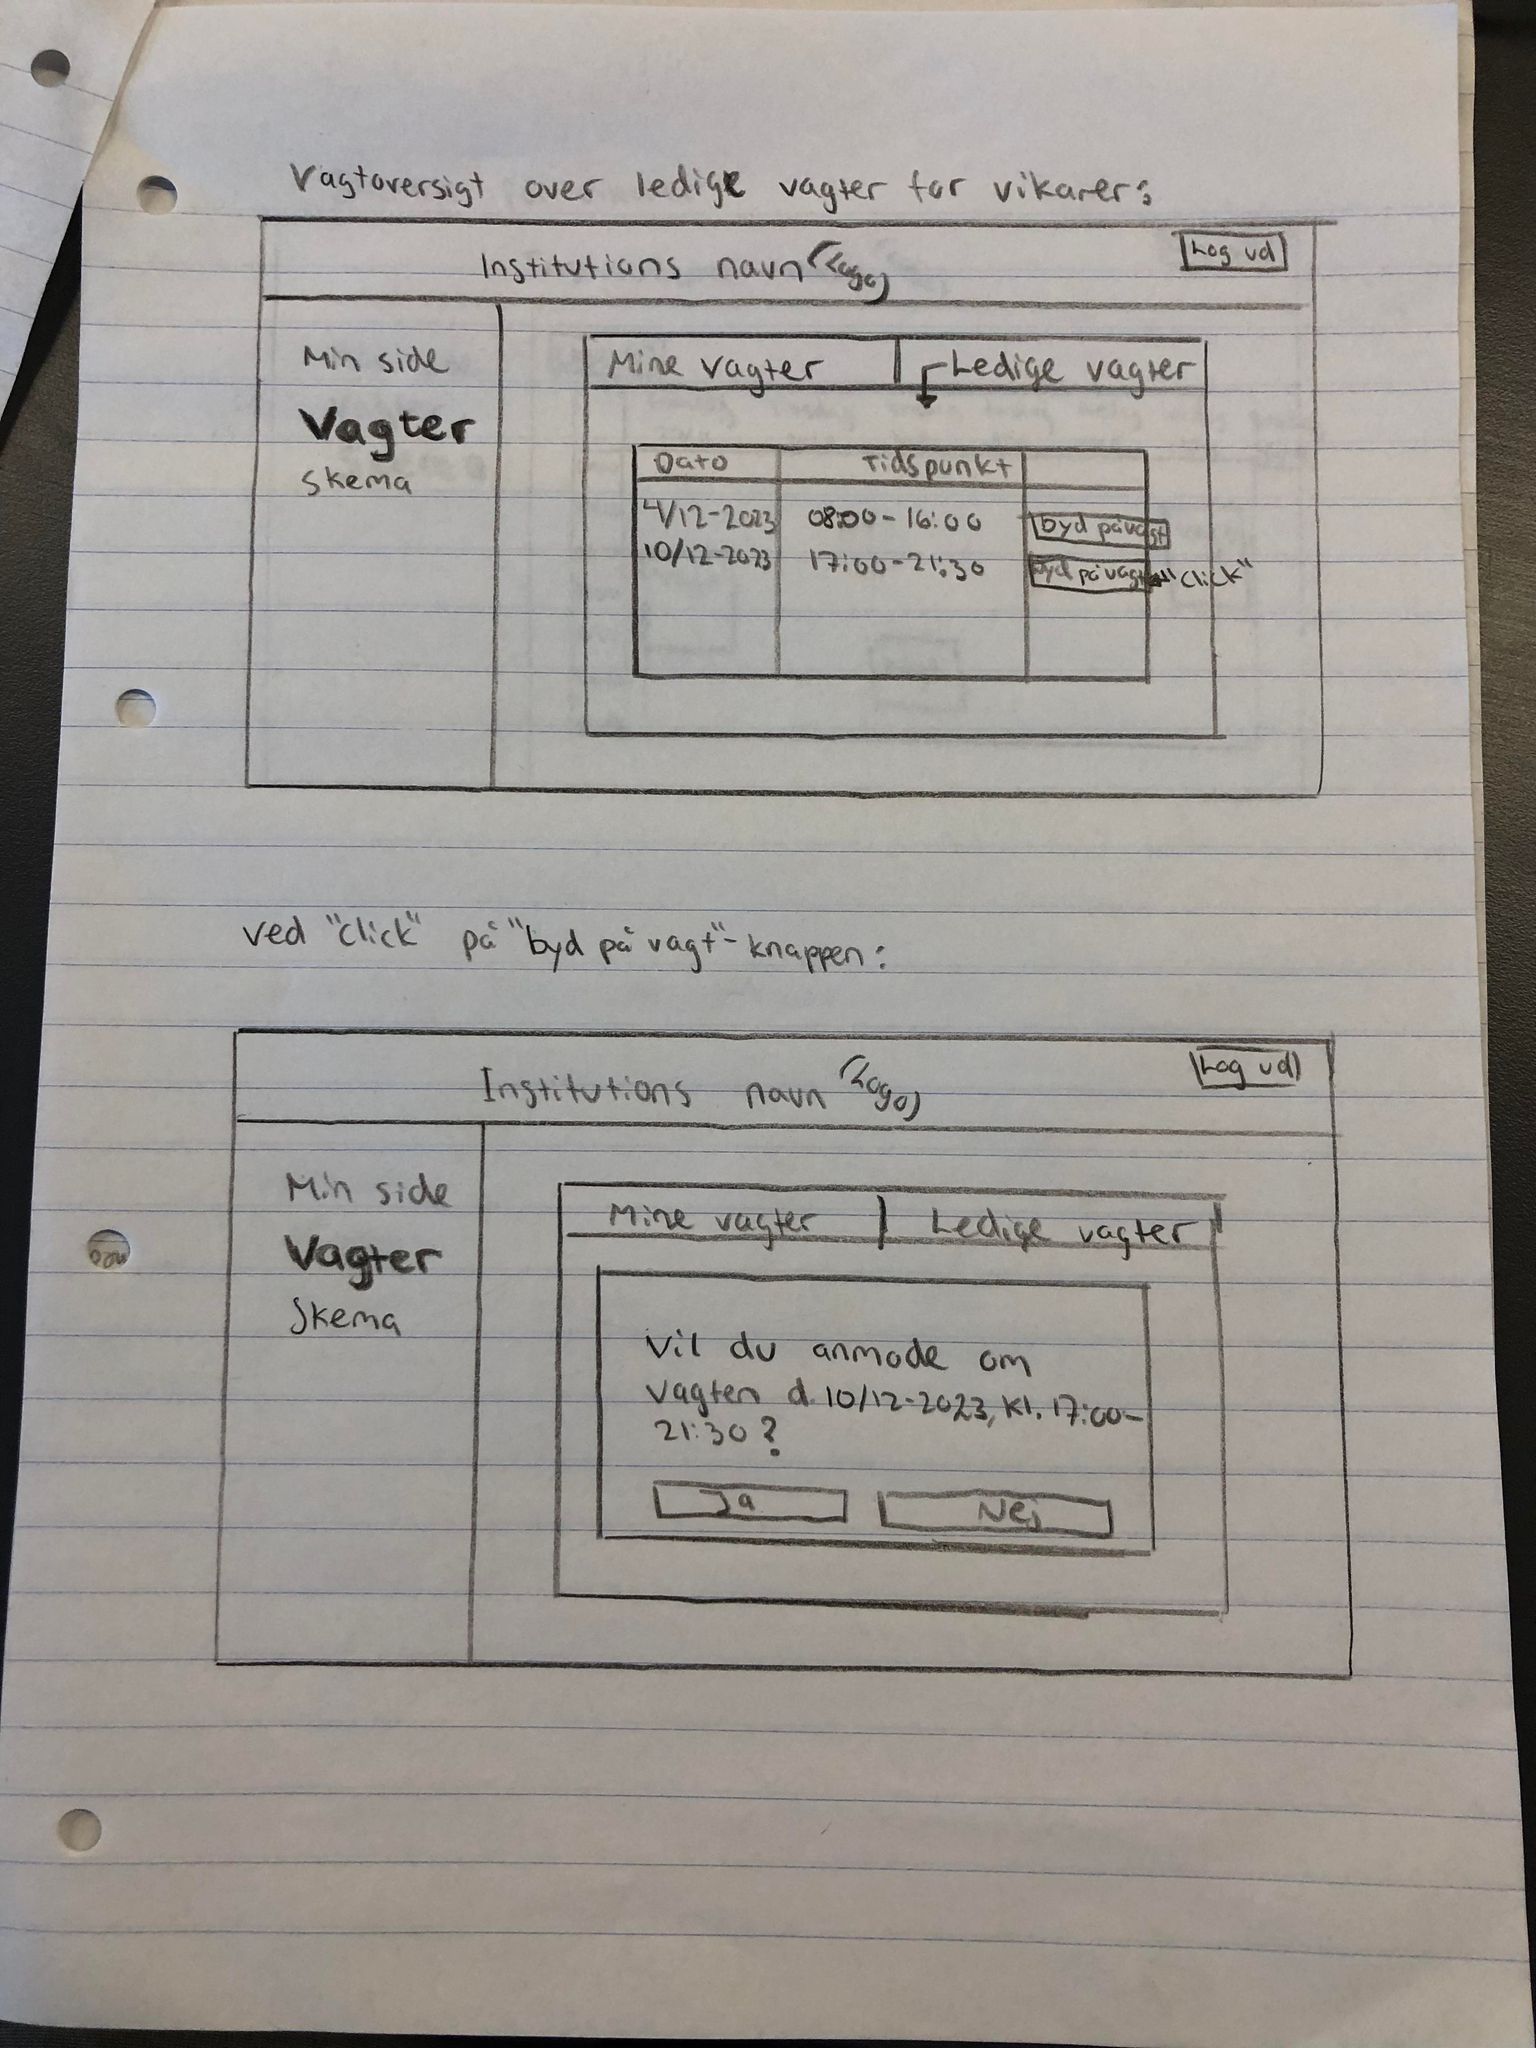 Vagtoversigt over ledige vagter for vikarer:
Institutions navn (Logo)
Log ud
Min side
Vagter
Skema
Mine vagter
Ledige vagter
Dato Tidspunkt
4/12-2023 08:00-16:00 byd på vagt
10/12-2023 17:00-21:30 byd på vagt "click"
ved "click" på "byd på vagt"-knappen:
Institutions navn (Logo)
Log ud
Min side
Vagter
Skema
Mine vagter
Ledige vagter
Vil du anmode om
vagten d. 10/12-2023, kl. 17:00-
21:30?
Ja
Nej